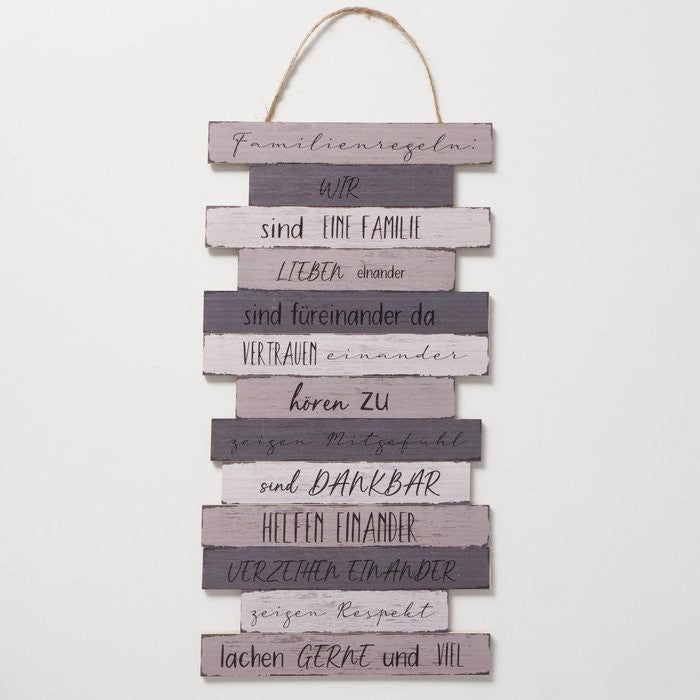 Familienregeln:
WIR
sind EINE FAMILIE
LIEBEN einander
sind füreinander da
VERTRAUEN einander
hören ZU
zeigen Mitgefühl
sind DANKBAR
HELFEN EINANDER
VERZEIHEN EINANDER
zeigen Respekt
lachen GERNE und VIEL